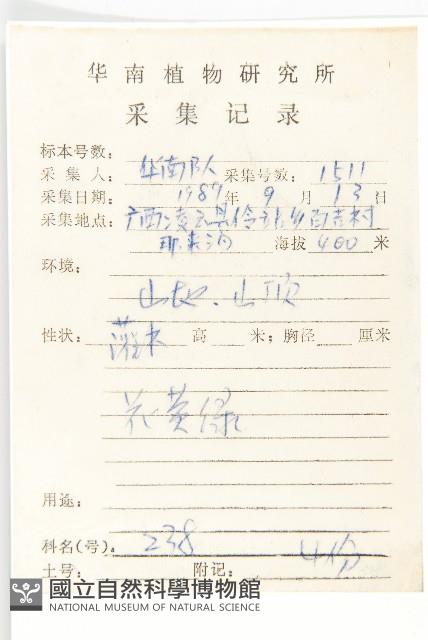 华南植物研究所
采集记录
标本号数:
采集人: 华南队 采集号数: 1511
采集日期: 1989年 9月 13日
采集地点: 广西凌云县伶站乡百吉村
海拔 400 米
环境:
山地、山顶
性状: 灌木 高 米; 胸径 厘米
花黄绿
用途:
科名(号). 238 4份
土号: 附记:
國立自然科學博物館
NATIONAL MUSEUM OF NATURAL SCIENCE